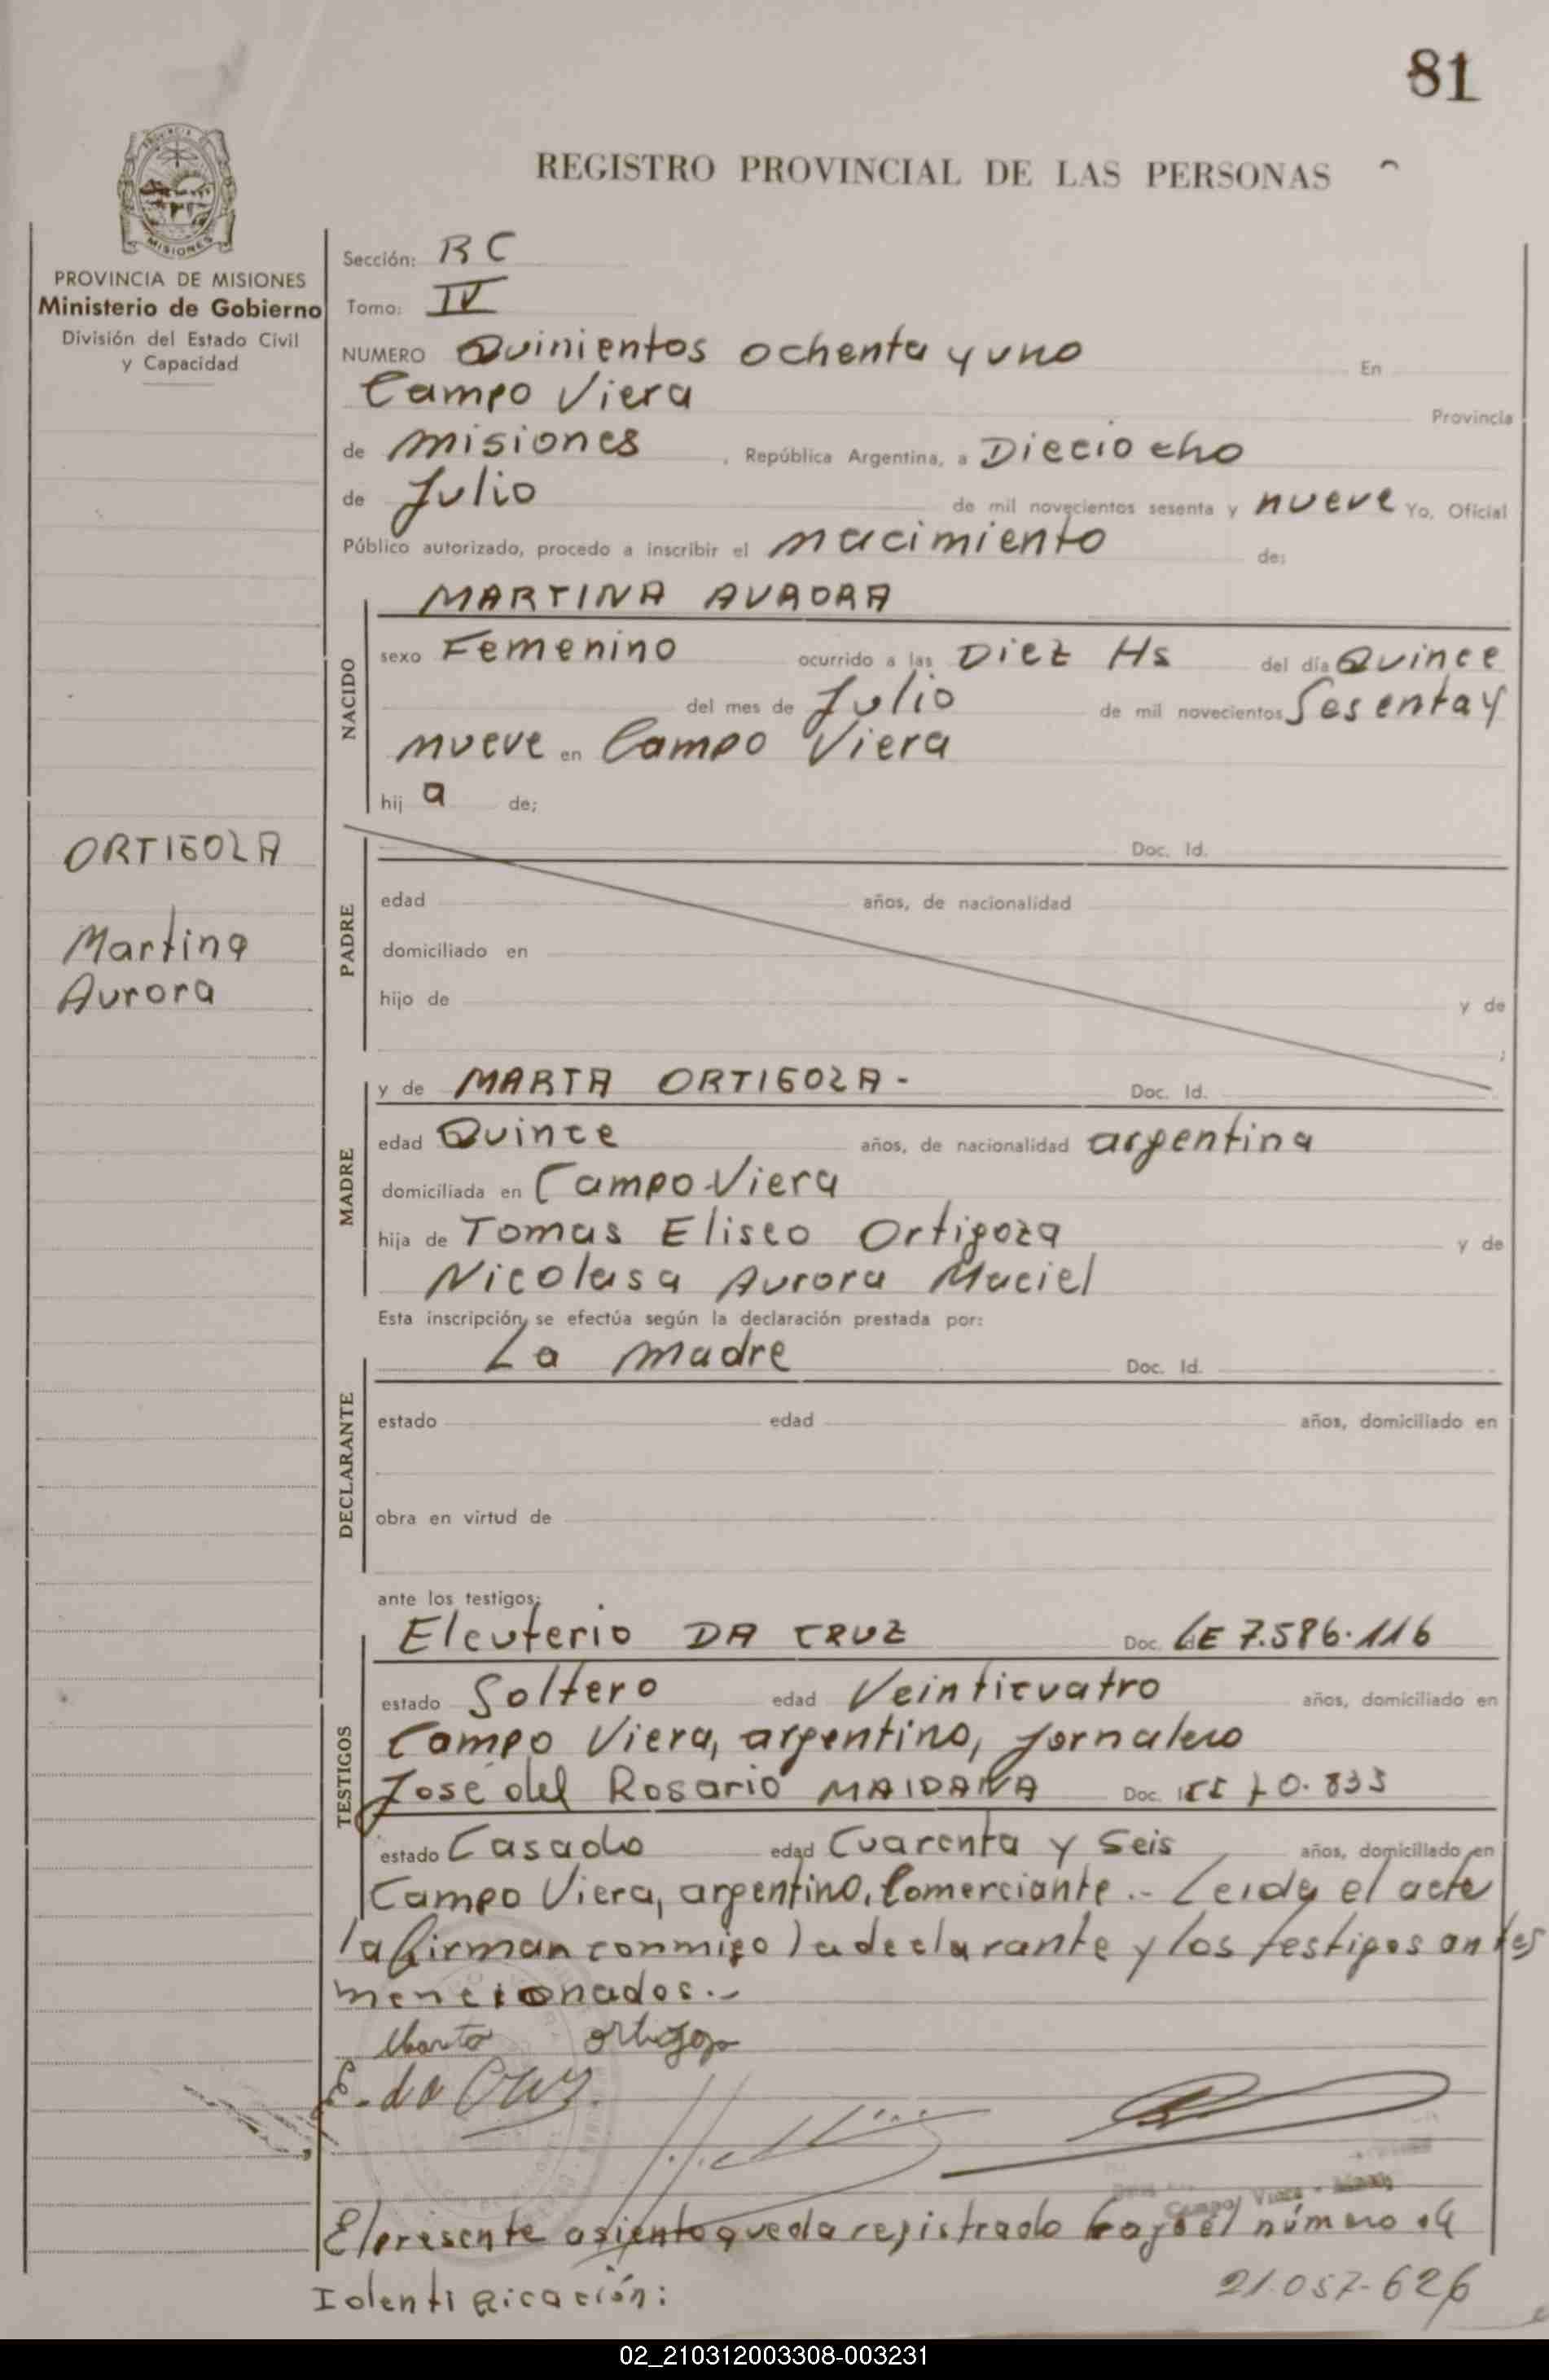 81
REGISTRO PROVINCIAL DE LAS PERSONAS
PROVINCIA DE MISIONES
Ministerio de Gobierno
División del Estado Civil
y Capacidad
Sección: RC
Tomo: IV
NUMERO Quinientos ochenta y uno En
Campo Viera Provincia
de Misiones, República Argentina, a Dieciocho
de Julio de mil novecientos sesenta y nueve Yo, Oficial
Público autorizado, procedo a inscribir el nacimiento de:
NACIDO
MARTINA AURORA
sexo Femenino ocurrido a las Diez Hs del día Quince
del mes de Julio de mil novecientos Sesenta y
nueve en Campo Viera
hij a de;
ORTIGOZA
Martina
Aurora
PADRE
Doc. Id.
edad años, de nacionalidad
domiciliado en
hijo de y de
;
MADRE
y de MARTA ORTIGOZA- Doc. Id.
edad Quince años, de nacionalidad argentina
domiciliada en Campo Viera
hija de Tomas Eliseo Ortigoza y de
Nicolasa Aurora Maciel
Esta inscripción se efectúa según la declaración prestada por:
DECLARANTE
La madre Doc. Id.
estado edad años, domiciliado en
obra en virtud de
ante los testigos:
TESTIGOS
Eleuterio DA CRUZ Doc. Id LE 7.586.116
estado Soltero edad Veinticuatro años, domiciliado en
Campo Viera, argentino, jornalero
José del Rosario MAIDANA Doc.
estado Casado edad Cuarenta y Seis años, domiciliado en
Campo Viera, argentino, Comerciante.- Leida el acta
la firman conmigo la declarante y los testigos antes
mencionados.-
Marta Ortigoza
E. da Cruz
Campo Viera
El presente asiento queda registrado bajo el número de
Identificación: 21.057.626
02_210312003308-003231